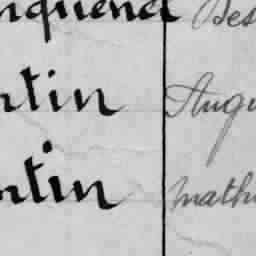 nquenet Des
rtin Augu
rtin Mathu